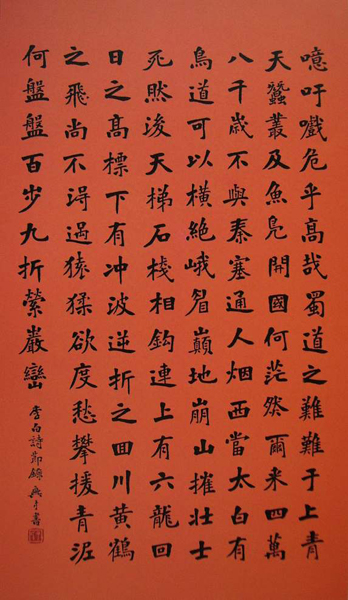 噫吁戲危乎高哉蜀道之難難于上青
天蠶叢及魚鳧開國何茫然爾來四萬
八千歲不與秦塞通人烟西當太白有
鳥道可以橫絕峨眉巔地崩山摧壯士
死然後天梯石棧相鈎連上有六龍回
日之高標下有冲波逆折之回川黃鶴
之飛尚不得過猿猱欲度愁攀援青泥
何盤盤百步九折縈巖巒 李白詩節錄 書